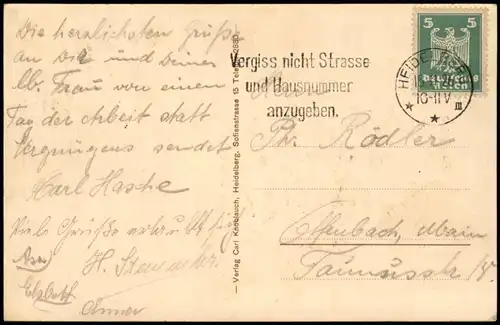 Die herzlichsten Grüße
an Dich und Deiner
lb. Frau von einem
Tag der Arbeit statt
Vergnügens sendet
Karl Hasche
Viele Grüße
H.
Elsbeth
Verlag Carl Knoblauch, Heidelberg, Sofienstrasse 15 Telephon
Vergiss nicht Strasse
und Hausnummer
anzugeben.
5 5
HEIDELBERG
10-11V
Herrn
Ph. Rödler
Offenbach, Main
Taunusstr.